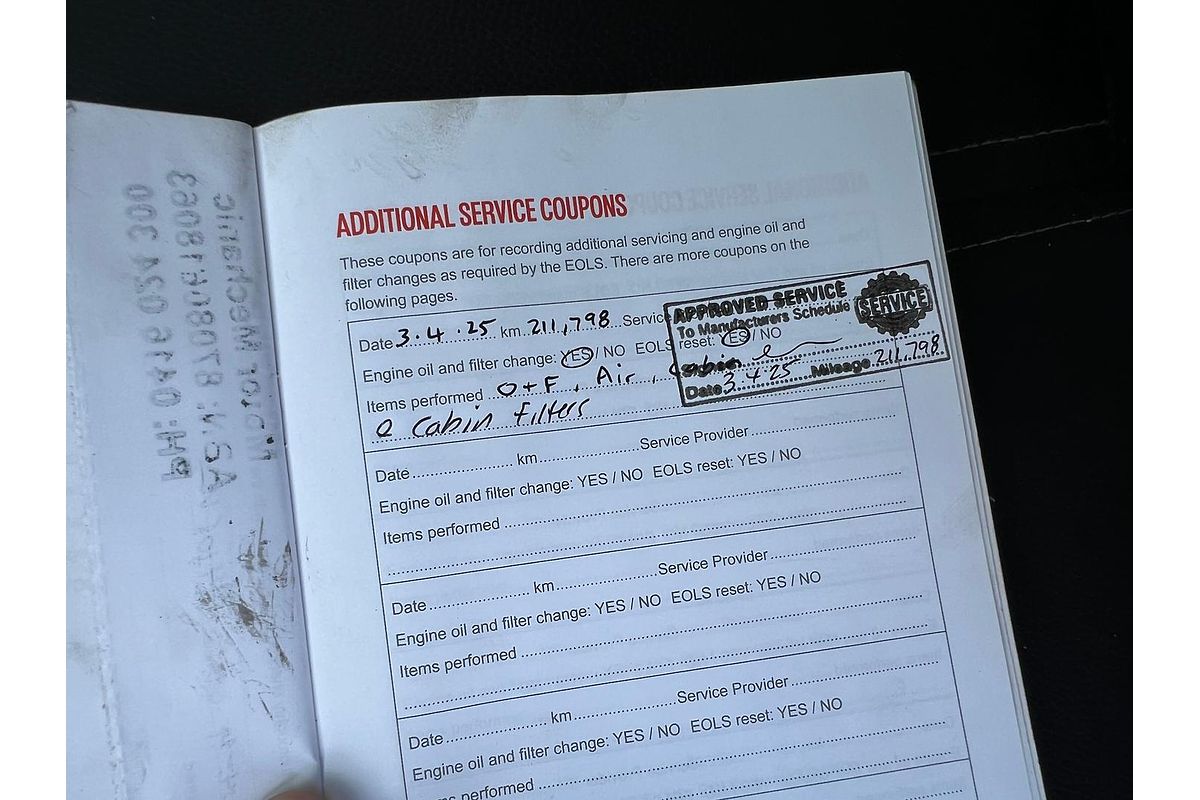 ADDITIONAL SERVICE COUPONS
These coupons are for recording additional servicing and engine oil and
filter changes as required by the EOLS. There are more coupons on the
following pages.
Date 3.4.25 km 211,798 Service
APPROVED SERVICE
To Manufacturers Schedule
SERVICE
Date 3.4.25 Mileage 211,798
Engine oil and filter change: YES / NO EOLS reset: YES / NO
Items performed O+F, Air, Cabin
Cabin Filters
Date km Service Provider
Engine oil and filter change: YES / NO EOLS reset: YES / NO
Items performed
Date km Service Provider
Engine oil and filter change: YES / NO EOLS reset: YES / NO
Items performed
Date km Service Provider
Engine oil and filter change: YES / NO EOLS reset: YES / NO
Items performed